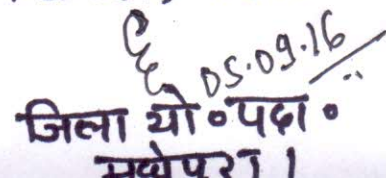 05.09.16
जिला यो॰ पदा॰
मधेपुरा।